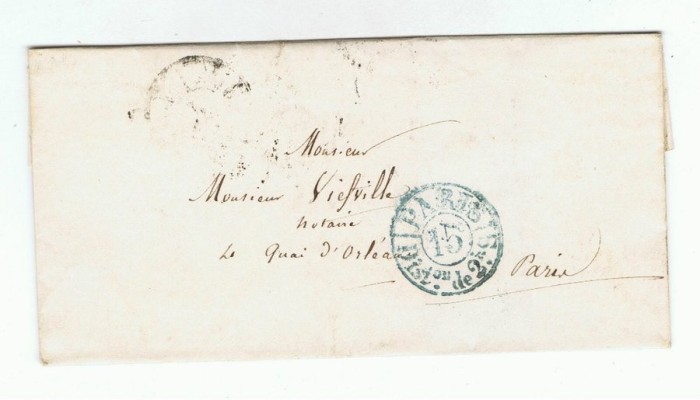 Monsieur
Monsieur Viefville
Notaire
Quai d'Orléa
Paris
PARIS
15